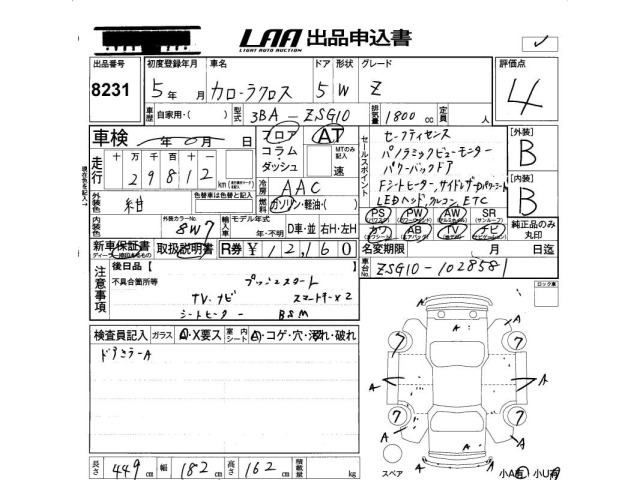 LAA 出品申込書
LIGHT AUTO AUCTION
出品番号 初度登録年月 車名 ドア 形状 グレード 評価点
8231 5年 月 カローラクロス 5 W Z 4
車歴 自家用・( ) 型式 3BA-ZSG10 排気量 1800 cc 定員 人
車検 年 0月 日 フロア AT
コラム・ダッシュ MTのみ記入 速
セールスポイント
セーフティセンス
パノラミックビューモニター
パワーバックドア
LEDヘッド ETC
[外装] B
[内装] B
現在色を記入
走行 十 万 千 百 十 一
29812 km
冷房 AAC
外装色 紺 色替車は色替と記入
燃料 ガソリン・軽油・( )
PS PW AW SR
カワ AB TV ナビ
純正品のみ丸印
内装色 外装カラーNo. 8W7 輸入車 モデル年式 年・不明 D車・並 右H・左H
新車保証書 取扱説明書 R券 ¥12,160
名変期限 月 日迄
車台No. ZSG10-1028581
注意事項
後日品【 】
不具合箇所等
プッシュスタート
TV.ナビ スマートキー×2
シートヒーター BSM
ロック車
検査員記入 ガラス A・X要ス 室内シート A・コゲ・穴・汚れ・破れ
ドアミラーA
A A A A A A A
7 7 7 7
長さ 449 cm 幅 182 cm 高さ 162 cm 積載量 kg
スペア 小A有 小U有